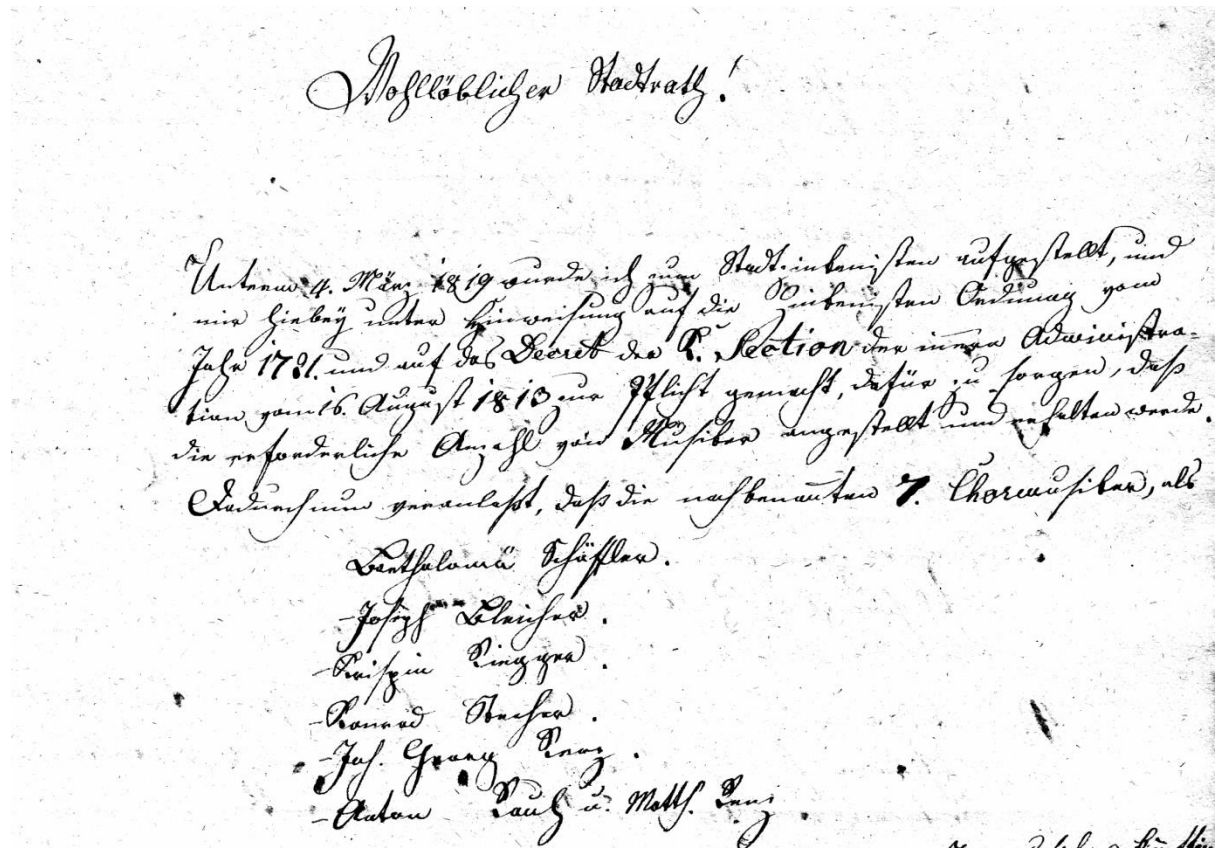 Wohllöblicher Stadtrath!
Unterm 4. März 1819 wurde ich zum Stadtzinkenisten aufgestellt, und
mir hiebey unter Hinweisung auf die Zinkenisten Ordnung vom
Jahr 1781. und auf das Decret der K. Section der innern Administra-
tion vom 16. August 1813 zur Pflicht gemacht, dafür zu sorgen, daß
die erforderliche Anzahl von Musiker angestellt und erhalten werde.
Dadurch nun veranlaßt, daß die nachbenannten 7. Chormusiker, als
Bartholomä Schäffler.
- Joseph Bleicher.
- Krispin Riegger.
- Konrad Stecher.
- Joh. Georg Renz.
- Anton Rauch u. Matth. Renz.